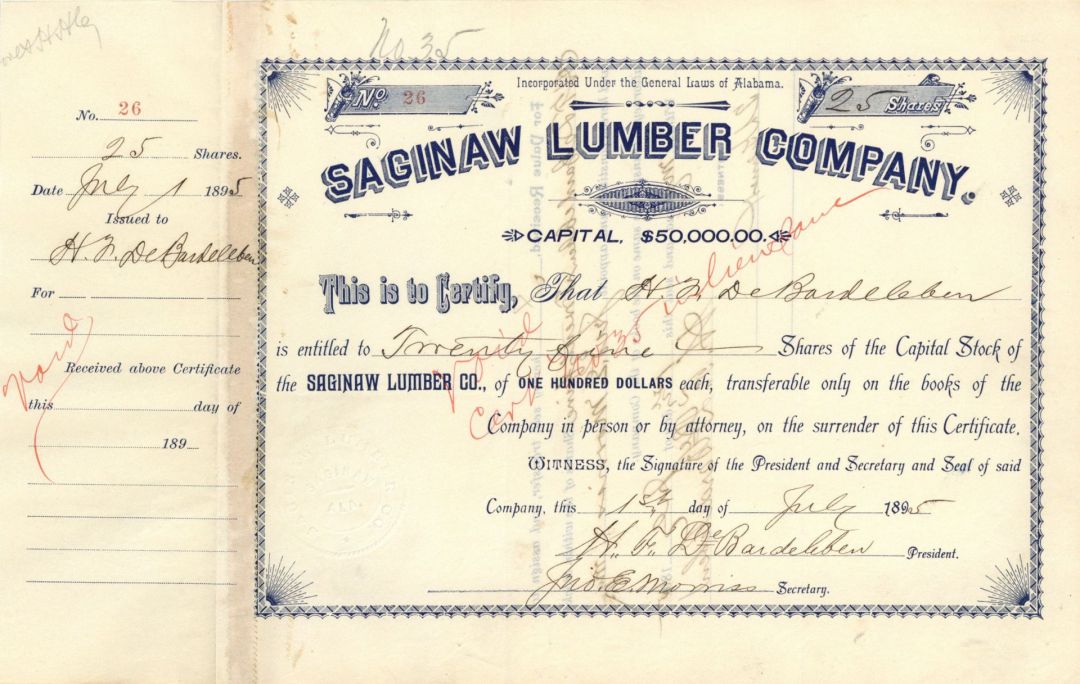 No. 35
No. 26
25 Shares.
Date July 1 1895
Issued to
H. F. DeBardeleben
For
void
Received above Certificate
this day of
189
No. 26
Incorporated Under the General Laws of Alabama.
25 Shares
SAGINAW LUMBER COMPANY.
CAPITAL, $50,000.00.
This is to Certify, That H. F. DeBardeleben
is entitled to Twenty five Shares of the Capital Stock of
the SAGINAW LUMBER CO., of ONE HUNDRED DOLLARS each, transferable only on the books of the
Company in person or by attorney, on the surrender of this Certificate.
Void
Cert 35 in lieu
WITNESS, the Signature of the President and Secretary and Seal of said
Company, this 1st day of July 1895
H. F. DeBardeleben President.
Jno. E. Morriss Secretary.